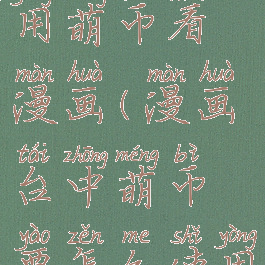 用萌币看
màn huà màn huà
漫画(漫画
tái zhōng méng bì
台中萌币
yào zěn me shǐ yòng
要怎么使用